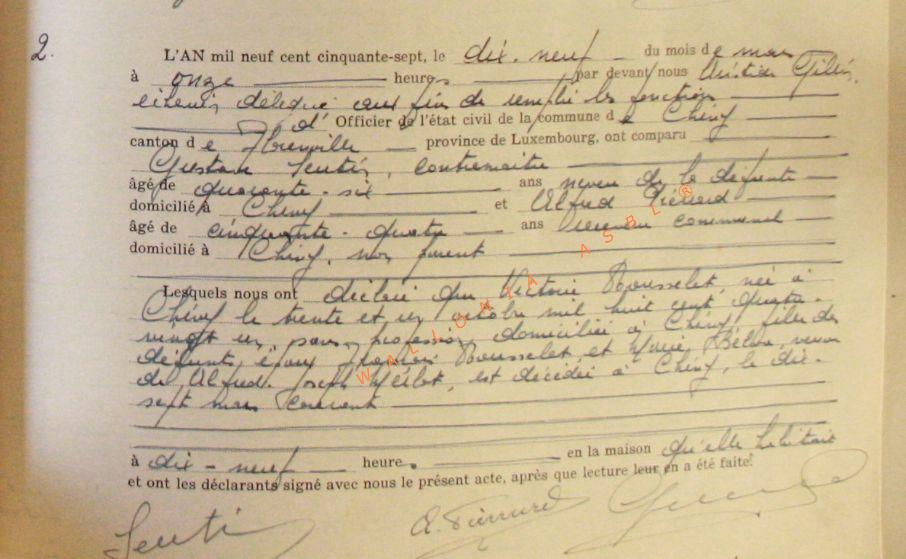 2.
L'AN mil neuf cent cinquante-sept, le dix-neuf du mois de mars
à onze heures par devant nous Aristide
échevin délégué aux fins de remplir les fonctions
d' Officier de l'état civil de la commune de Chiny
canton de Florenville province de Luxembourg, ont comparu
Gustave , contremaître
âgé de quarante-six ans neveu de la défunte
domicilié à Chiny et Alfred Pierrard
âgé de cinquante-quatre ans receveur communal
domicilié à Chiny, non parent
Lesquels nous ont déclaré que Victorie Rousselet, née à
Chiny le trente et un octobre mil huit cent quatre-
vingt un, sans profession, domiciliée à Chiny, fille de
défunts époux Rousselet et Marie , veuve
de Alfred-Joseph , est décédée à Chiny, le dix-
sept mars courant
à dix-neuf heures en la maison qu'elle habitait
et ont les déclarants signé avec nous le présent acte, après que lecture leur en a été faite.
A. Pierrard
WALLONIA ASBL ®